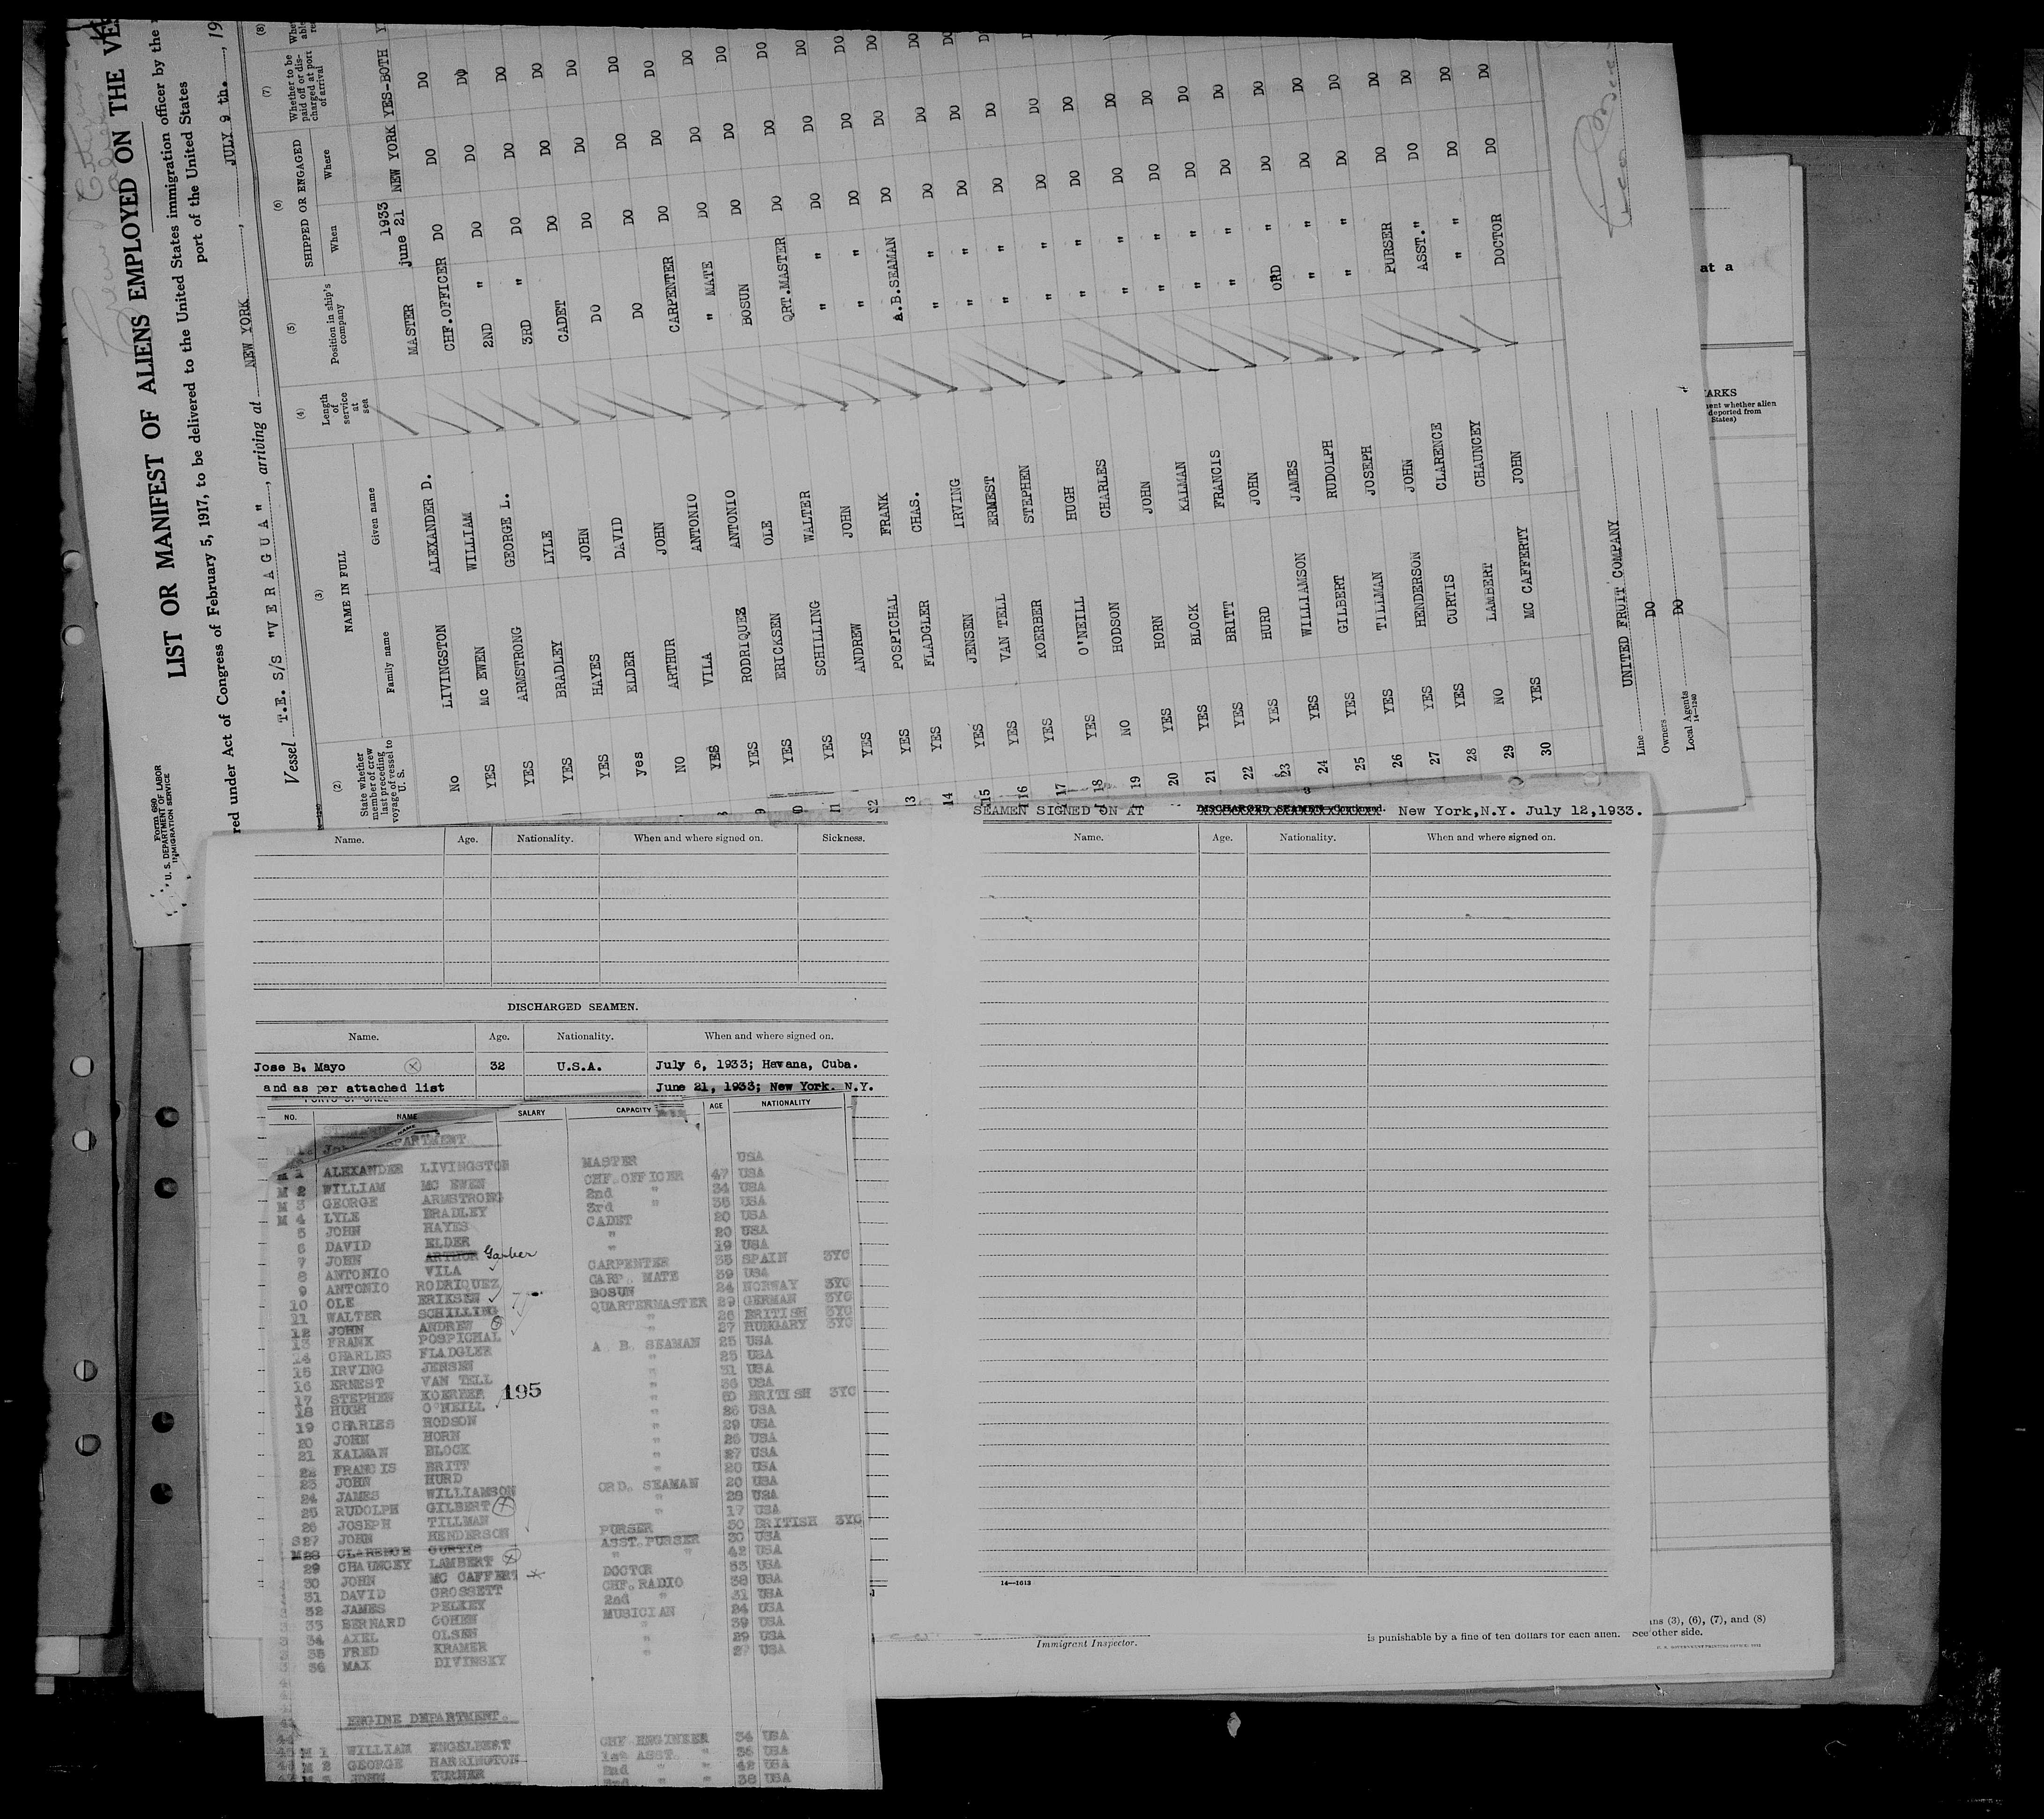 Form 680
U. S. DEPARTMENT OF LABOR
IMMIGRATION SERVICE
LIST OR MANIFEST OF ALIENS EMPLOYED ON THE
red under Act of Congress of February 5, 1917, to be delivered to the United States immigration officer by the
port of the United States
Vessel T.E. S/S "V E R A G U A", arriving at NEW YORK, JULY 9 th., 19
(2) (3) (4) (5) (6) (7) (8)
State whether member of crew last preceding voyage of vessel to U. S.
NAME IN FULL
Family name Given name
Length of service at sea
Position in ship's company
SHIPPED OR ENGAGED
When Where
Whether to be paid off or discharged at port of arrival
No LIVINGSTON ALEXANDER D. MASTER 1933 june 21 NEW YORK YES-BOTH
YES Mc EWEN WILLIAM CHF.OFFICER DO DO DO
YES ARMSTRONG GEORGE L. 2ND " DO DO DO
YES BRADLEY LYLE 3RD " DO DO DO
YES HAYES JOHN CADET DO DO DO
yes ELDER DAVID DO DO DO DO
NO ARTHUR JOHN DO DO DO DO
YES VILA ANTONIO CARPENTER DO DO DO
9 YES RODRIQUEZ ANTONIO " MATE DO DO DO
YES ERICKSEN OLE BOSUN DO DO DO
YES SCHILLING WALTER QRT.MASTER DO DO DO
YES ANDREW JOHN " " DO DO DO
13 YES POSPICHAL FRANK " " DO DO DO
14 YES FLADGLER CHAS. A.B.SEAMAN DO DO DO
15 YES JENSEN IRVING " " DO DO DO
16 YES VAN TELL ERNEST " " DO DO DO
17 YES KOERBER STEPHEN " " DO DO DO
18 YES O'NEILL HUGH " " DO DO DO
19 NO HODSON CHARLES " " DO DO DO
20 YES HORN JOHN " " DO DO DO
21 YES BLOCK KALMAN " " DO DO DO
22 YES BRITT FRANCIS " " DO DO DO
23 YES HURD JOHN " " DO DO DO
24 YES WILLIAMSON JAMES ORD " DO DO DO
25 YES GILBERT RUDOLPH " " DO DO DO
26 YES TILLMAN JOSEPH " " DO DO DO
27 YES HENDERSON JOHN PURSER DO DO DO
28 YES CURTIS CLARENCE ASST." DO DO DO
29 NO LAMBERT CHAUNCEY " " DO DO DO
30 YES MC CAFFERTY JOHN DOCTOR DO DO DO
Line UNITED FRUIT COMPANY
Owners DO
Local Agents DO
14—1240
at a
Name. Age. Nationality. When and where signed on. Sickness.
DISCHARGED SEAMEN.
Name. Age. Nationality. When and where signed on.
Jose B. Mayo 32 U.S.A. July 6, 1933; Havana, Cuba.
and as per attached list June 21, 1933; New York. N.Y.
NO. NAME SALARY CAPACITY AGE NATIONALITY
DEPARTMENT
M 1 ALEXANDER LIVINGSTON MASTER USA
M 2 WILLIAM MC EWEN CHF.OFFICER 47 USA
M 3 GEORGE ARMSTRONG 2nd " 34 USA
M 4 LYLE BRADLEY 3rd " 35 USA
5 JOHN HAYES CADET 20 USA
6 DAVID ELDER " 20 USA
7 JOHN ARTHUR Garber " 19 USA
8 ANTONIO VILA CARPENTER 35 SPAIN 3YC
9 ANTONIO RODRIQUEZ CARP. MATE 39 USA
10 OLE ERIKSEN BOSUN 24 NORWAY 3YC
11 WALTER SCHILLING QUARTERMASTER 29 GERMAN 3YC
12 JOHN ANDREW " 26 BRITISH 3YC
13 FRANK POSPICHAL " 27 HUNGARY 3YC
14 CHARLES FLADGLER A. B. SEAMAN 25 USA
15 IRVING JENSEN " 25 USA
16 ERNEST VAN TELL " 31 USA
17 STEPHEN KOERBER 195 " 36 USA
18 HUGH O'NEILL " BRITISH 3YC
19 CHARLES HODSON " 26 USA
20 JOHN HORN " 29 USA
21 KALMAN BLOCK " 26 USA
22 FRANCIS BRITT " 27 USA
23 JOHN HURD " 20 USA
24 JAMES WILLIAMSON ORD. SEAMAN 20 USA
25 RUDOLPH GILBERT " 28 USA
26 JOSEPH TILLMAN " 17 USA
S27 JOHN HENDERSON PURSER 30 BRITISH 3YC
M28 CLARENCE CURTIS ASST.PURSER 30 USA
29 CHAUNCEY LAMBERT " " 42 USA
30 JOHN MC CAFFERT DOCTOR 53 USA
31 DAVID GROSSETT CHF.RADIO 38 USA
32 JAMES PELKEY 2nd " 31 USA
33 BERNARD COHEN MUSICIAN 24 USA
34 AXEL OLSEN " 39 USA
35 FRED KRAMER " 29 USA
36 MAX DIVINSKY " 27 USA
ENGINE DEPARTMENT.
M 1 WILLIAM ENGELBERT CHF ENGINEER 34 USA
M 2 GEORGE HARRINGTON 1st ASST " 36 USA
M 3 JOHN TURNER 2nd " " 42 USA
3rd " " 38 USA
SEAMEN SIGNED ON AT DISCHARGED SEAMEN—Continued. New York,N.Y. July 12,1933.
Name. Age. Nationality. When and where signed on.
14—1613
Immigrant Inspector.
ns (3), (6), (7), and (8)
is punishable by a fine of ten dollars for each alien. See other side.
ARKS
ent whether alien
deported from
States)